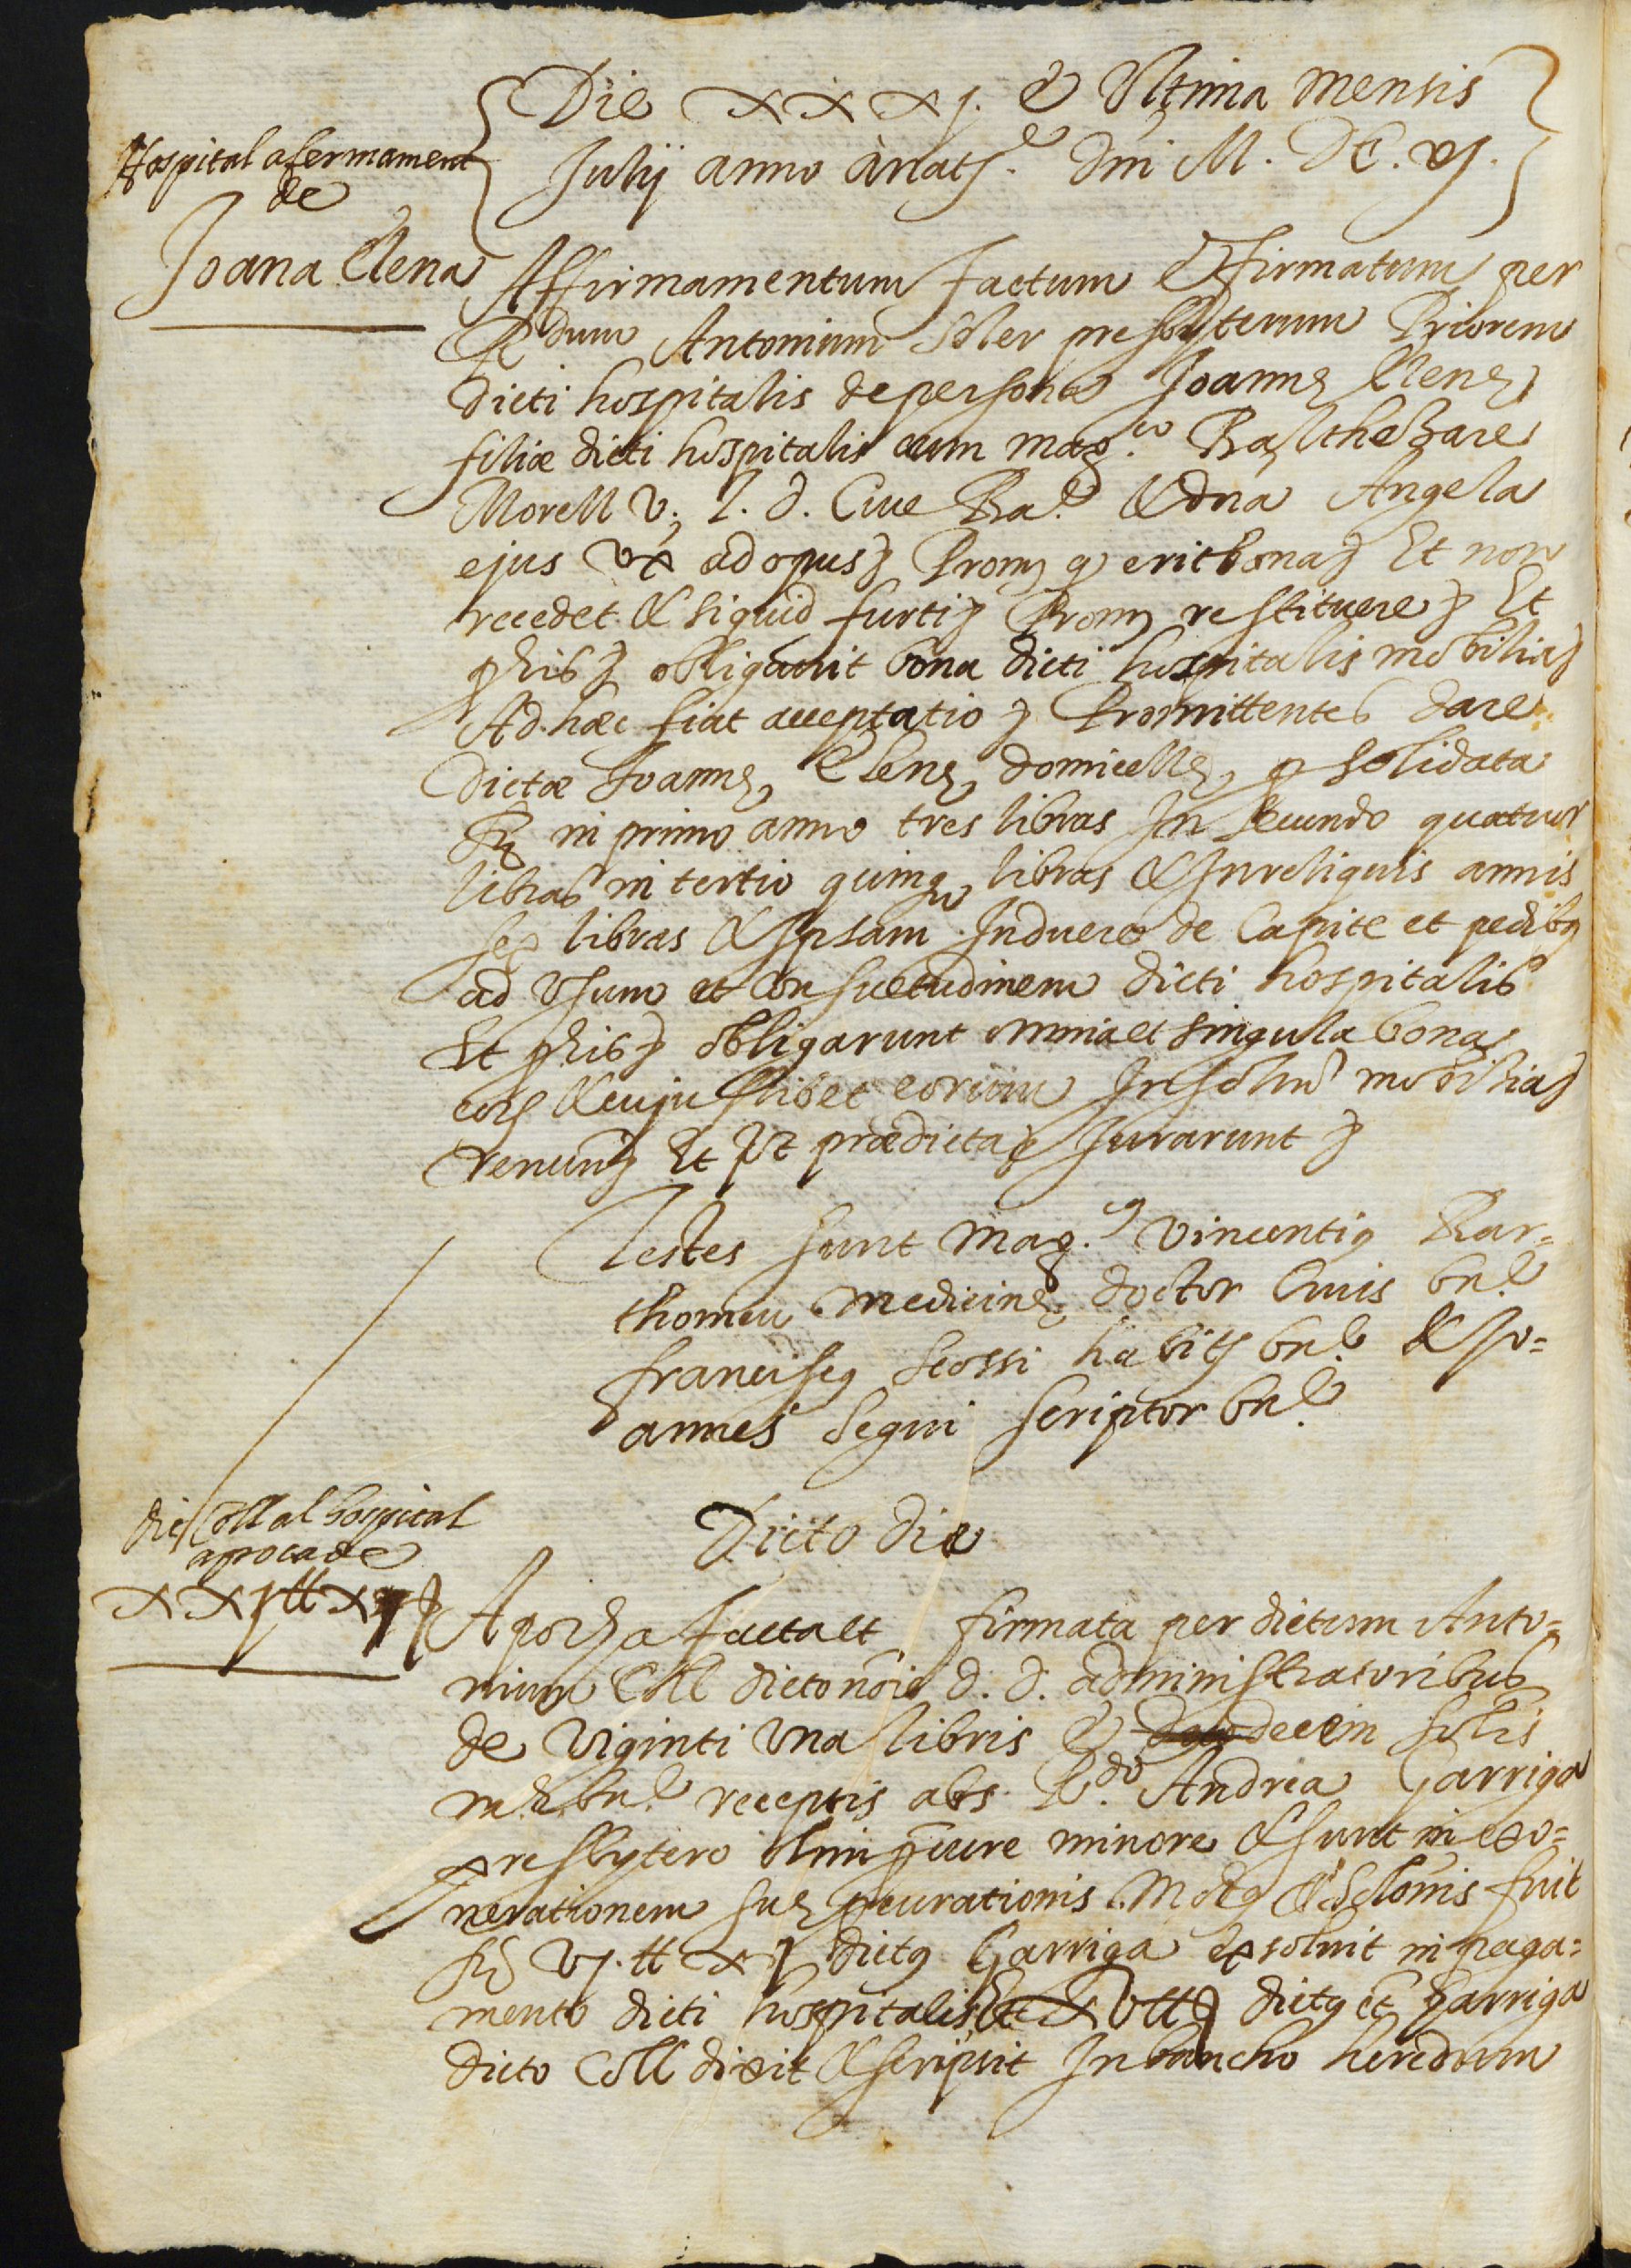 Die xxxj. & Ultima mensis
Julij anno à natt.e Dni M. DC. vj.
Hospital afermament
de
Joana Elena
Affirmamentum factum & firmatum per
Rdum Antonium Soler presbyterum Priorem
dicti hospitalis de persona Joannę Elenę
filiæ dicti hospitalis cum mag.co Balthezare
Morell v. J. d. Cive Ba.e & dna Angela
ejus ux ad opus Prom q erit bona Et non
recedet & siquid furti Prom restituere Et
obligavit bona dicti hospitalis mobilia
Ad hæc fiat acceptatio Promittentes dare
dictæ Joannę, Elenę, domicellę, p solidata
in primo anno tres libras In secundo quatuor
libras in tertio quinq libras & In reliquis annis
sex libras & Ipsam Induere de Capite et pedibq
ad Usum et Consuetudinem dicti hospitalis
Et obligarunt omnia et singula bona
eorq & cujuslibet eorum In solm mobilia
renunt Et Ut prædicta Jurarunt
Testes sunt Mag.cq Vincentiq Bar=
thomeu Medicinę doctor Civis bn.e
francisq Scossi habitt bn.e & Jo=
annes Segui scriptor bn.e
Dicto die
dit Coll al hospital
apoca de
xxjtt x
Apocha facta et firmata per dictum Anto=
nium Coll dicto noie d. d. administratoribus
de Viginti Una libris & decem solis
receptis abs R.do Andrea Garriga
presbytero olim pcure minore & sunt in exo=
nerationem suę pcurationis. Motq & solonis fuit
vj. tt x dictq Garriga exsolvit in paga=
mento dicti hospitalis Et xvtt dictq et Garriga
dicto Coll dixit & scripsit In bancho heredum